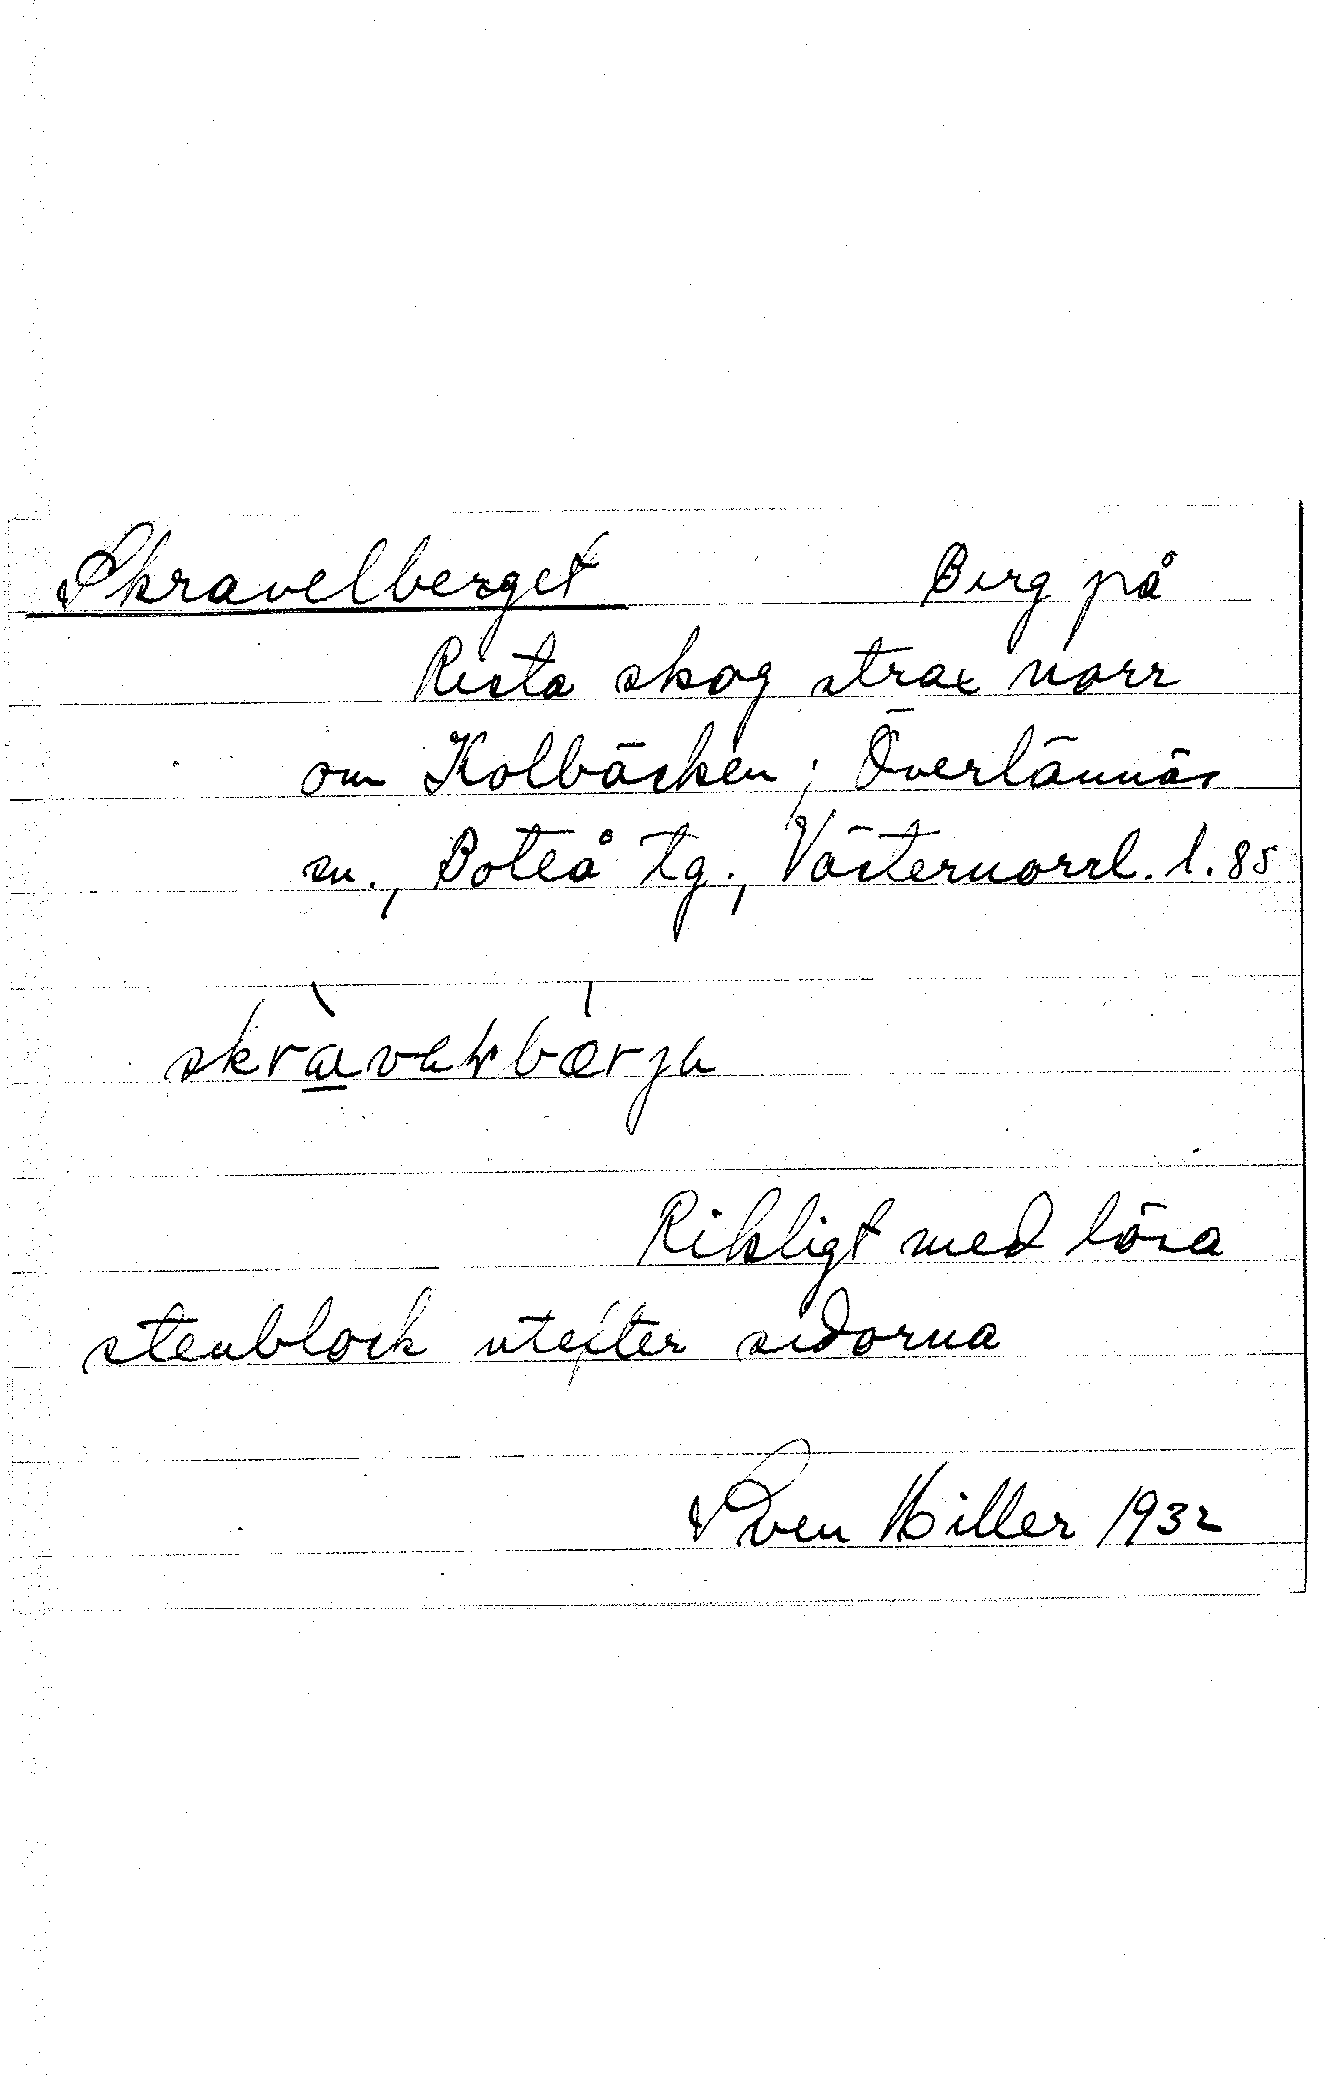 Skravelberget Berg på
Rista skog strax norr
om Kolbäcken; Överlännäs
sn., Boteå tg., Västernorrl. l. 85
Rikligt med lösa
stenblock utefter sidorna
Sven Hiller 1932